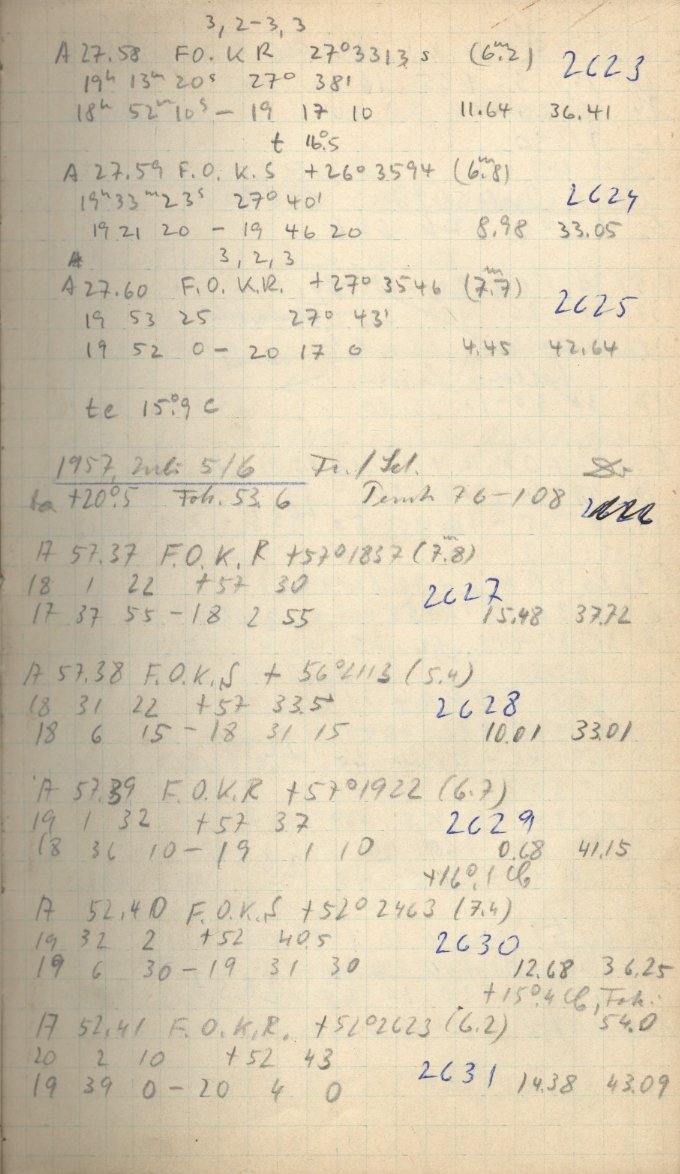 3, 2-3, 3
A 27.58 F.O. K R 27° 3313 s (6ᵐ.2) 2623
19ʰ 13ᵐ 20ˢ 27° 38'
18ʰ 52ᵐ 10ˢ - 19 17 10 11.64 36.41
t 16°.5
A 27.59 F.O. K.S +26° 3594 (6ᵐ.8)
19ʰ 33ᵐ 23ˢ 27° 40' 2624
19 21 20 - 19 46 20 8.98 33.05
3, 2, 3
A 27.60 F.O. K.R. +27° 3546 (7ᵐ.7) 2625
19 53 25 27° 43'
19 52 0 - 20 17 0 4.45 42.64
te 15°.9 C
1957, Juli 5/6
ta +20°.5 Fok. 53.6 76-108
A 57.37 F.O.K. R +57° 1837 (7ᵐ.8)
18 1 22 +57 30 2627
17 37 55 - 18 2 55 15.48 37.72
A 57.38 F.O.K.S + 56° 2113 (5.4)
18 31 22 +57 33.5 2628
18 6 15 - 18 31 15 10.01 33.01
A 57.39 F.O.K.R +57° 1922 (6.7)
19 1 32 +57 37 2629
18 36 10 - 19 1 10 0.68 41.15
+16°,1
A 52.40 F.O.K.S +52° 2463 (7.4)
19 32 2 +52 40.5 2630
19 6 30 - 19 31 30 12.68 36.25
+15°.4 Fok.
A 52.41 F.O.K.R. +52° 2623 (6.2) 54.0
20 2 10 +52 43
19 39 0 - 20 4 0 2631 14.38 43.09